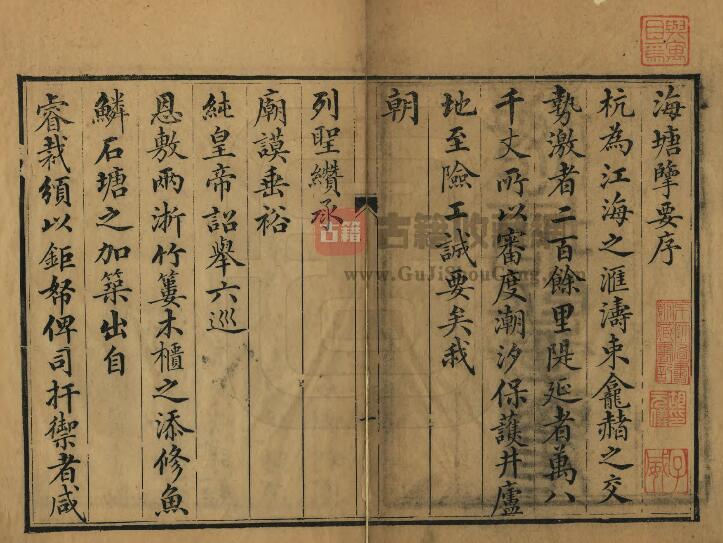 海塘擥要序
杭為江海之滙濤束龕赭之交
勢激者二百餘里隄延者萬八
千丈所以審度潮汐保護井廬
地至險工誠要矣我
朝
列聖纘承
廟謨垂裕
純皇帝詔舉六巡
恩敷兩浙竹簍木櫃之添修魚
鱗石塘之加築出自
睿裁頒以鉅帑俾司扞禦者咸
古籍
古籍收藏網
www.GuJiShouCang.com